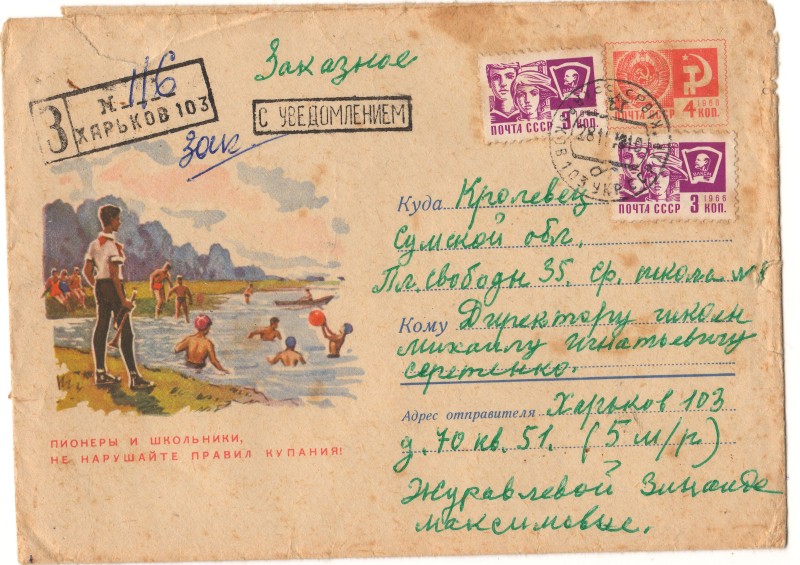 Заказное
З
№ 116
ХАРЬКОВ 103
С УВЕДОМЛЕНИЕМ
Зак
ПОЧТА СССР 3 КОП.
1966
ПОЧТА СССР 4 КОП.
1966
ПОЧТА СССР 3 КОП.
Куда Кролевец
Сумской обл.
Пл. свободы 35. Ср. школа №
Кому Директору школы
михаилу игнатьевичу
серетенко.
Адрес отправителя Харьков 103
д. 70 кв. 51. (5 м/р)
Журавлевой Зинаиде
максимовне.
ПИОНЕРЫ И ШКОЛЬНИКИ,
НЕ НАРУШАЙТЕ ПРАВИЛ КУПАНИЯ!